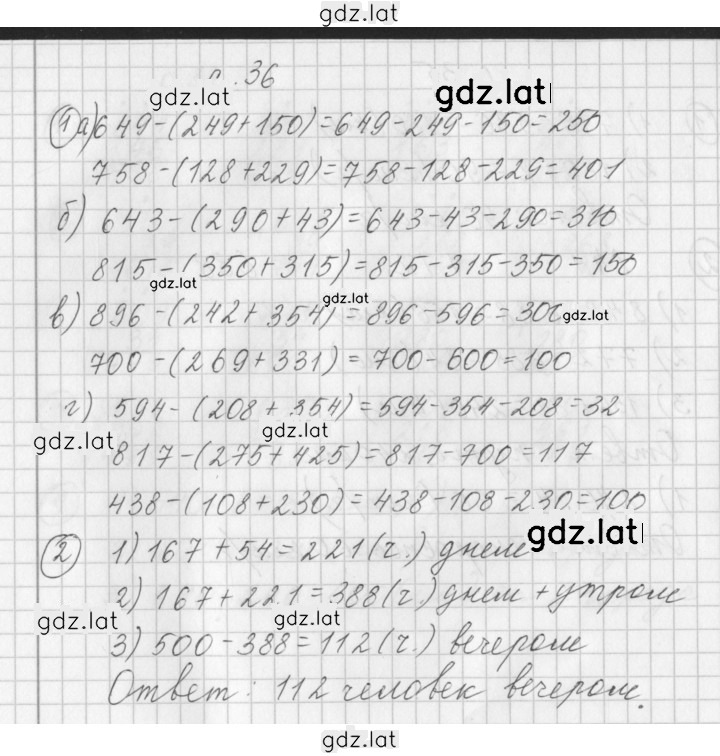 gdz.lat
36
gdz.lat gdz.lat
1 а) 649-(249+150)=649-249-150=250
758-(128+229)=758-128-229=401
б) 643-(290+43)=643-43-290=310
815-(350+315)=815-315-350=150
gdz.lat gdz.lat
в) 896-(242+354)=896-596=300 gdz.lat
700-(269+331)=700-600=100
г) 594-(208+354)=594-354-208=32
gdz.lat gdz.lat
817-(275+425)=817-700=117
438-(108+230)=438-108-230=100
gdz.lat
2 1) 167+54=221(ч.) днем
2) 167+221=388(ч.) днем + утром
gdz.lat gdz.lat
3) 500-388=112(ч.) вечером
Ответ: 112 человек вечером.
gdz.lat